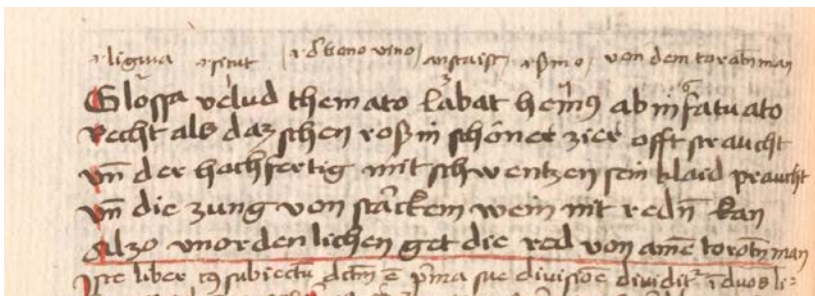 .i. ligwa .i. sicut .i. de bono vino anstaist .i. sermo von dem torotn man
Glossa velud themato labat hemus ab infatuato
Recht als daz schen roß in schöner zier offt straucht
vn der hochfertig mit schwentzen sein klaid praucht
vn die zung von starckem wein nit redn kan
Alzo vnordenlichen get die red von ame torotn man
Iste liber cuius subiectu dictum e prima sue divisioe dividit in duos li-